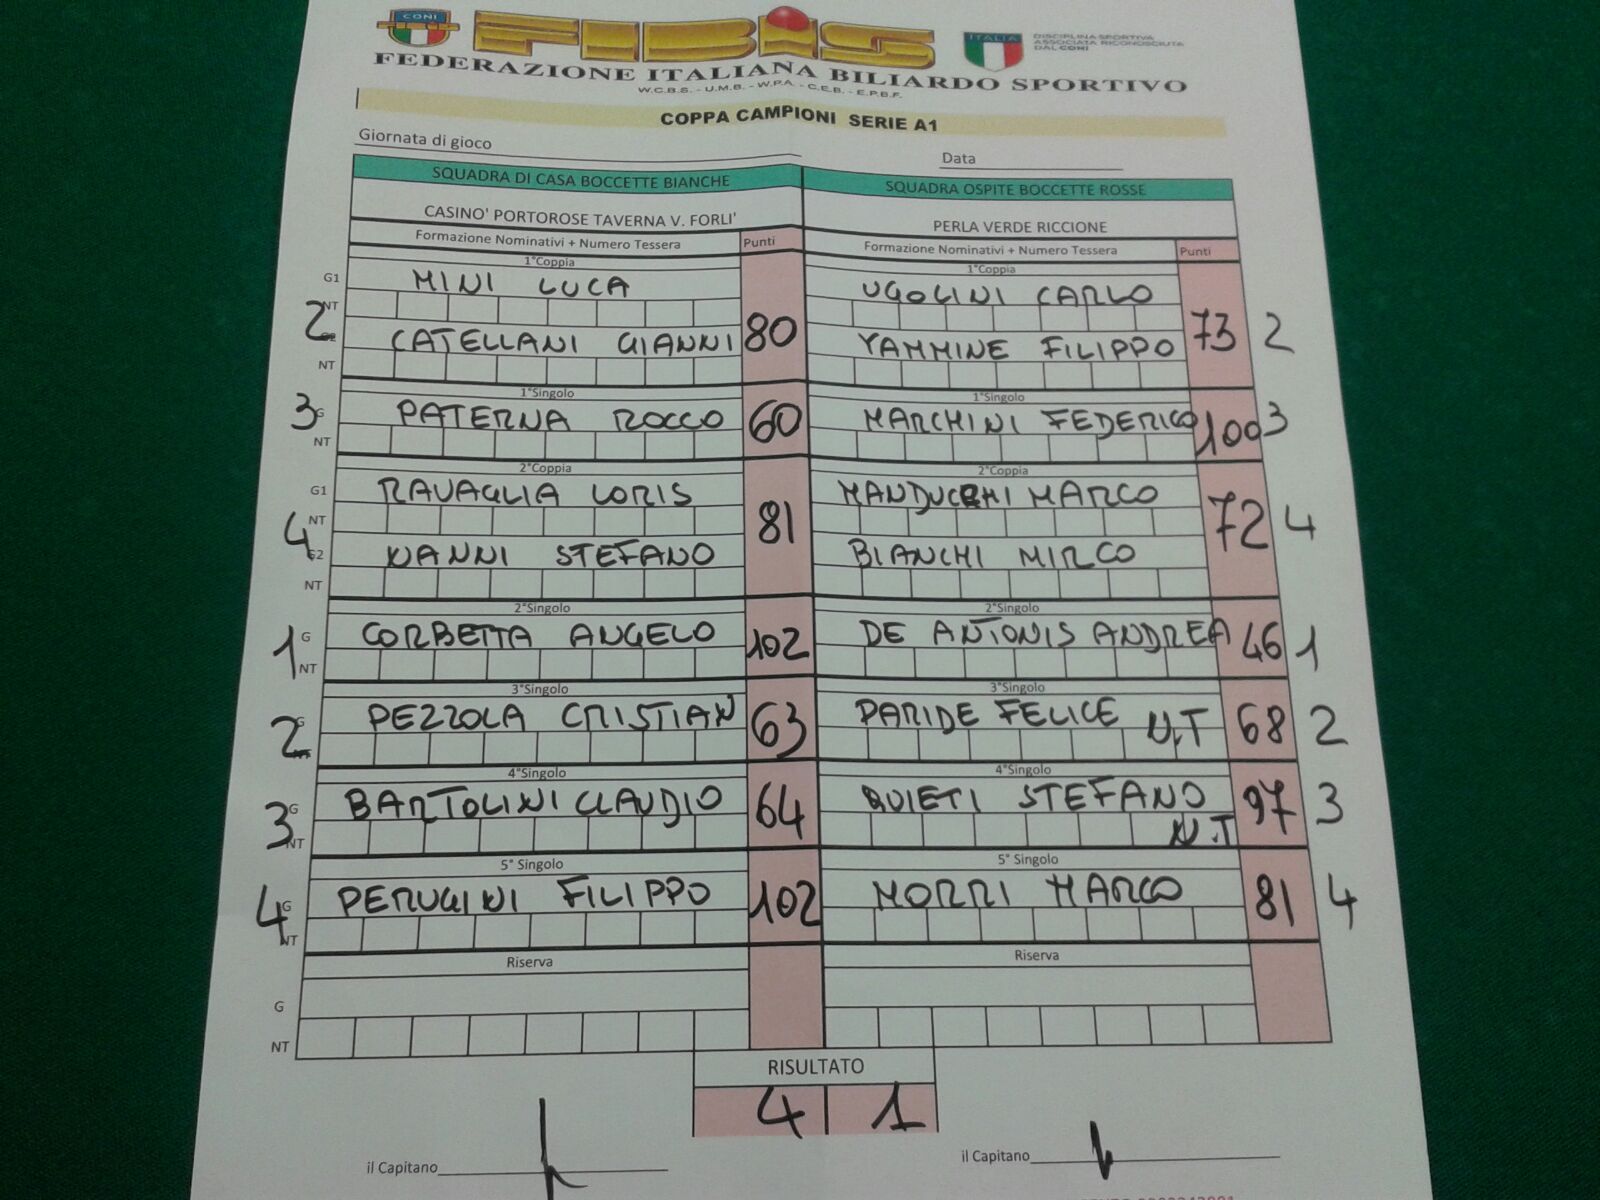 CONI
FIBIS
ITALIA
DISCIPLINA SPORTIVA
ASSOCIATA RICONOSCIUTA
DAL CONI
FEDERAZIONE ITALIANA BILIARDO SPORTIVO
W.C.B.S. - U.M.B. - W.P.A. - C.E.B. - E.P.B.F.
COPPA CAMPIONI SERIE A1
Giornata di gioco
Data
SQUADRA DI CASA BOCCETTE BIANCHE
SQUADRA OSPITE BOCCETTE ROSSE
CASINO' PORTOROSE TAVERNA V. FORLI'
PERLA VERDE RICCIONE
Formazione Nominativi + Numero Tessera Punti
Formazione Nominativi + Numero Tessera Punti
1°Coppia
1°Coppia
G1 MINI LUCA
UGOLINI CARLO
2 NT 80
73 2
G2 CATELLANI GIANNI
YAMMINE FILIPPO
NT
1°Singolo
1°Singolo
3 G PATERNA ROCCO 60
MARCHINI FEDERICO 100 3
NT
2°Coppia
2°Coppia
G1 RAVAGLIA LORIS
MANDUCHI MARCO
4 NT 81
72 4
G2 NANNI STEFANO
BIANCHI MIRCO
NT
2°Singolo
2°Singolo
1 G CORBETTA ANGELO 102
DE ANTONIS ANDREA 46 1
NT
3°Singolo
3°Singolo
2 G PEZZOLA CRISTIAN 63
PARIDE FELICE N.T 68 2
4°Singolo
4°Singolo
3 G BARTOLINI CLAUDIO 64
QUIETI STEFANO 97 3
NT
N.T
5° Singolo
5° Singolo
4 G PERUGINI FILIPPO 102
MORRI MARCO 81 4
NT
Riserva
Riserva
G
NT
RISULTATO
4 1
il Capitano
il Capitano